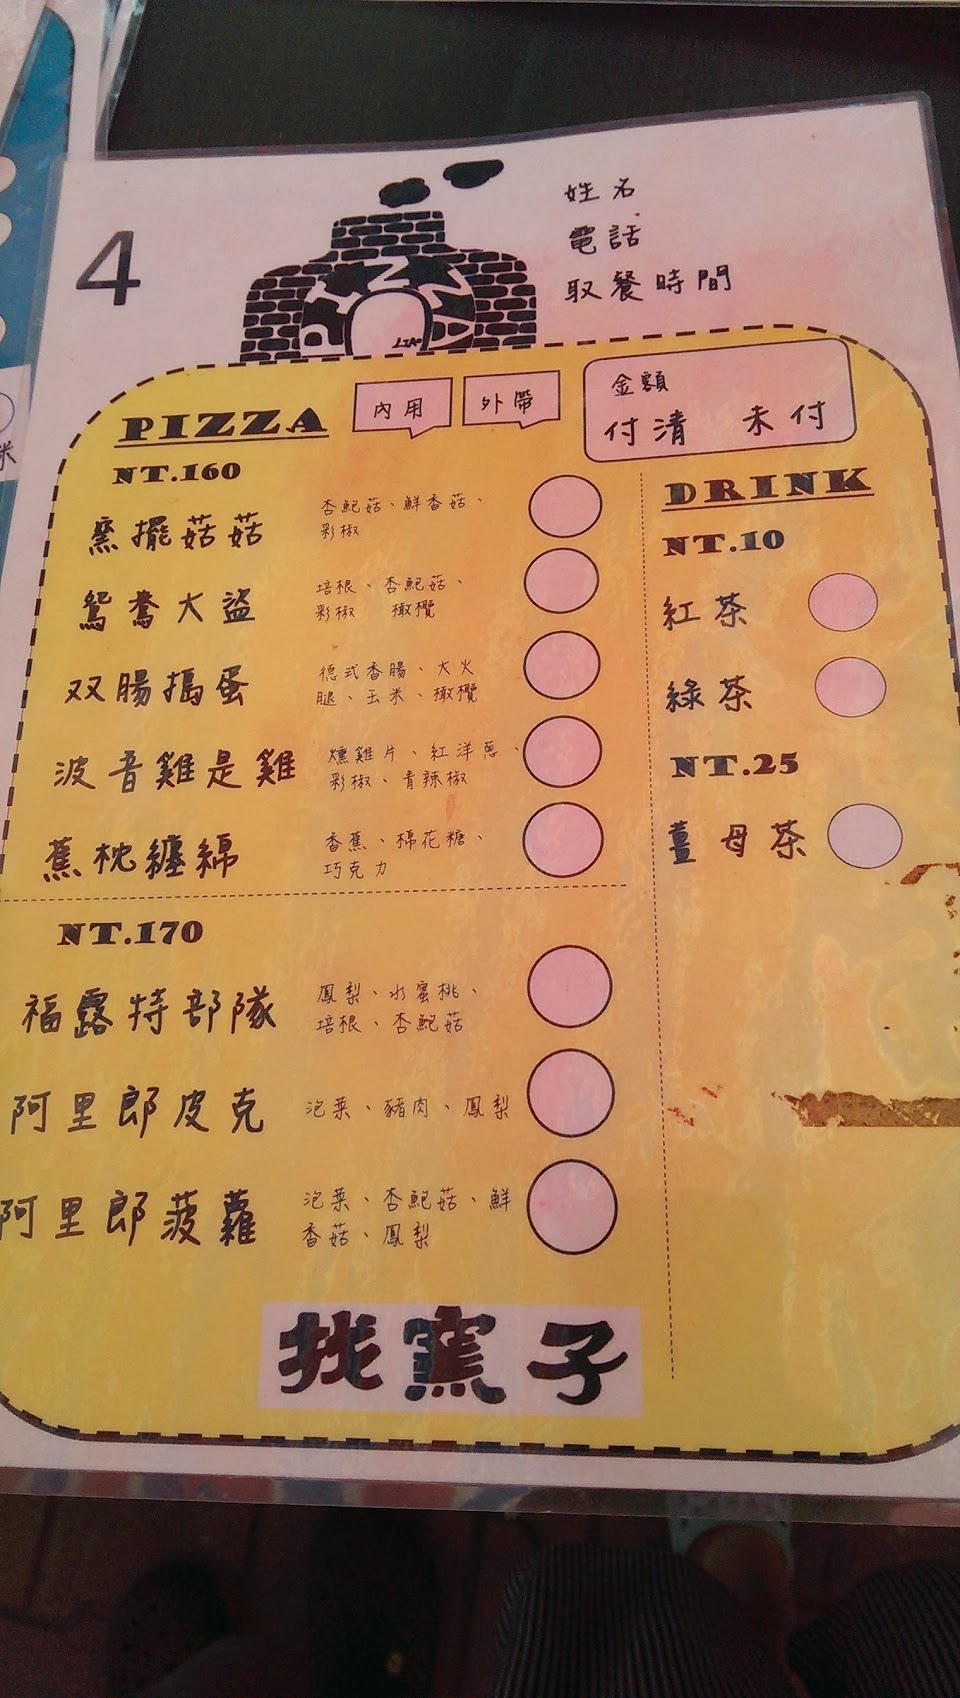 4
姓名
電話
取餐時間
LIAO
PIZZA
內用
外帶
金額
付清 未付
NT.160
窯擺菇菇
杏鮑菇、鮮香菇、
彩椒
鴛鴦大盜
培根、杏鮑菇、
彩椒 橄欖
双腸搗蛋
德式香腸、大火
腿、玉米、橄欖
波音雞是雞
燻雞片、紅洋蔥、
彩椒、青辣椒
蕉枕纏綿
香蕉、棉花糖、
巧克力
NT.170
福露特部隊
鳳梨、水蜜桃、
培根、杏鮑菇
阿里郎皮克
泡菜、豬肉、鳳梨
阿里郎菠蘿
泡菜、杏鮑菇、鮮
香菇、鳳梨
DRINK
NT.10
紅茶
綠茶
NT.25
薑母茶
找窯子
米